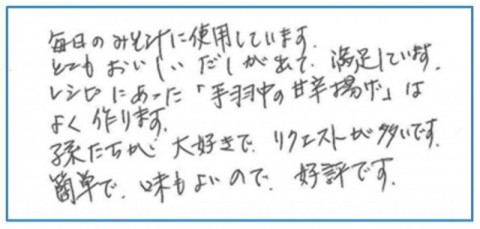 毎日のみそ汁に使用しています。
とてもおいしいだしが出て、満足しています。
レシピにあった「手羽中の甘辛揚げ」は
よく作ります。
孫たちが、大好きで、リクエストが多いです。
簡単で、味もよいので、好評です。